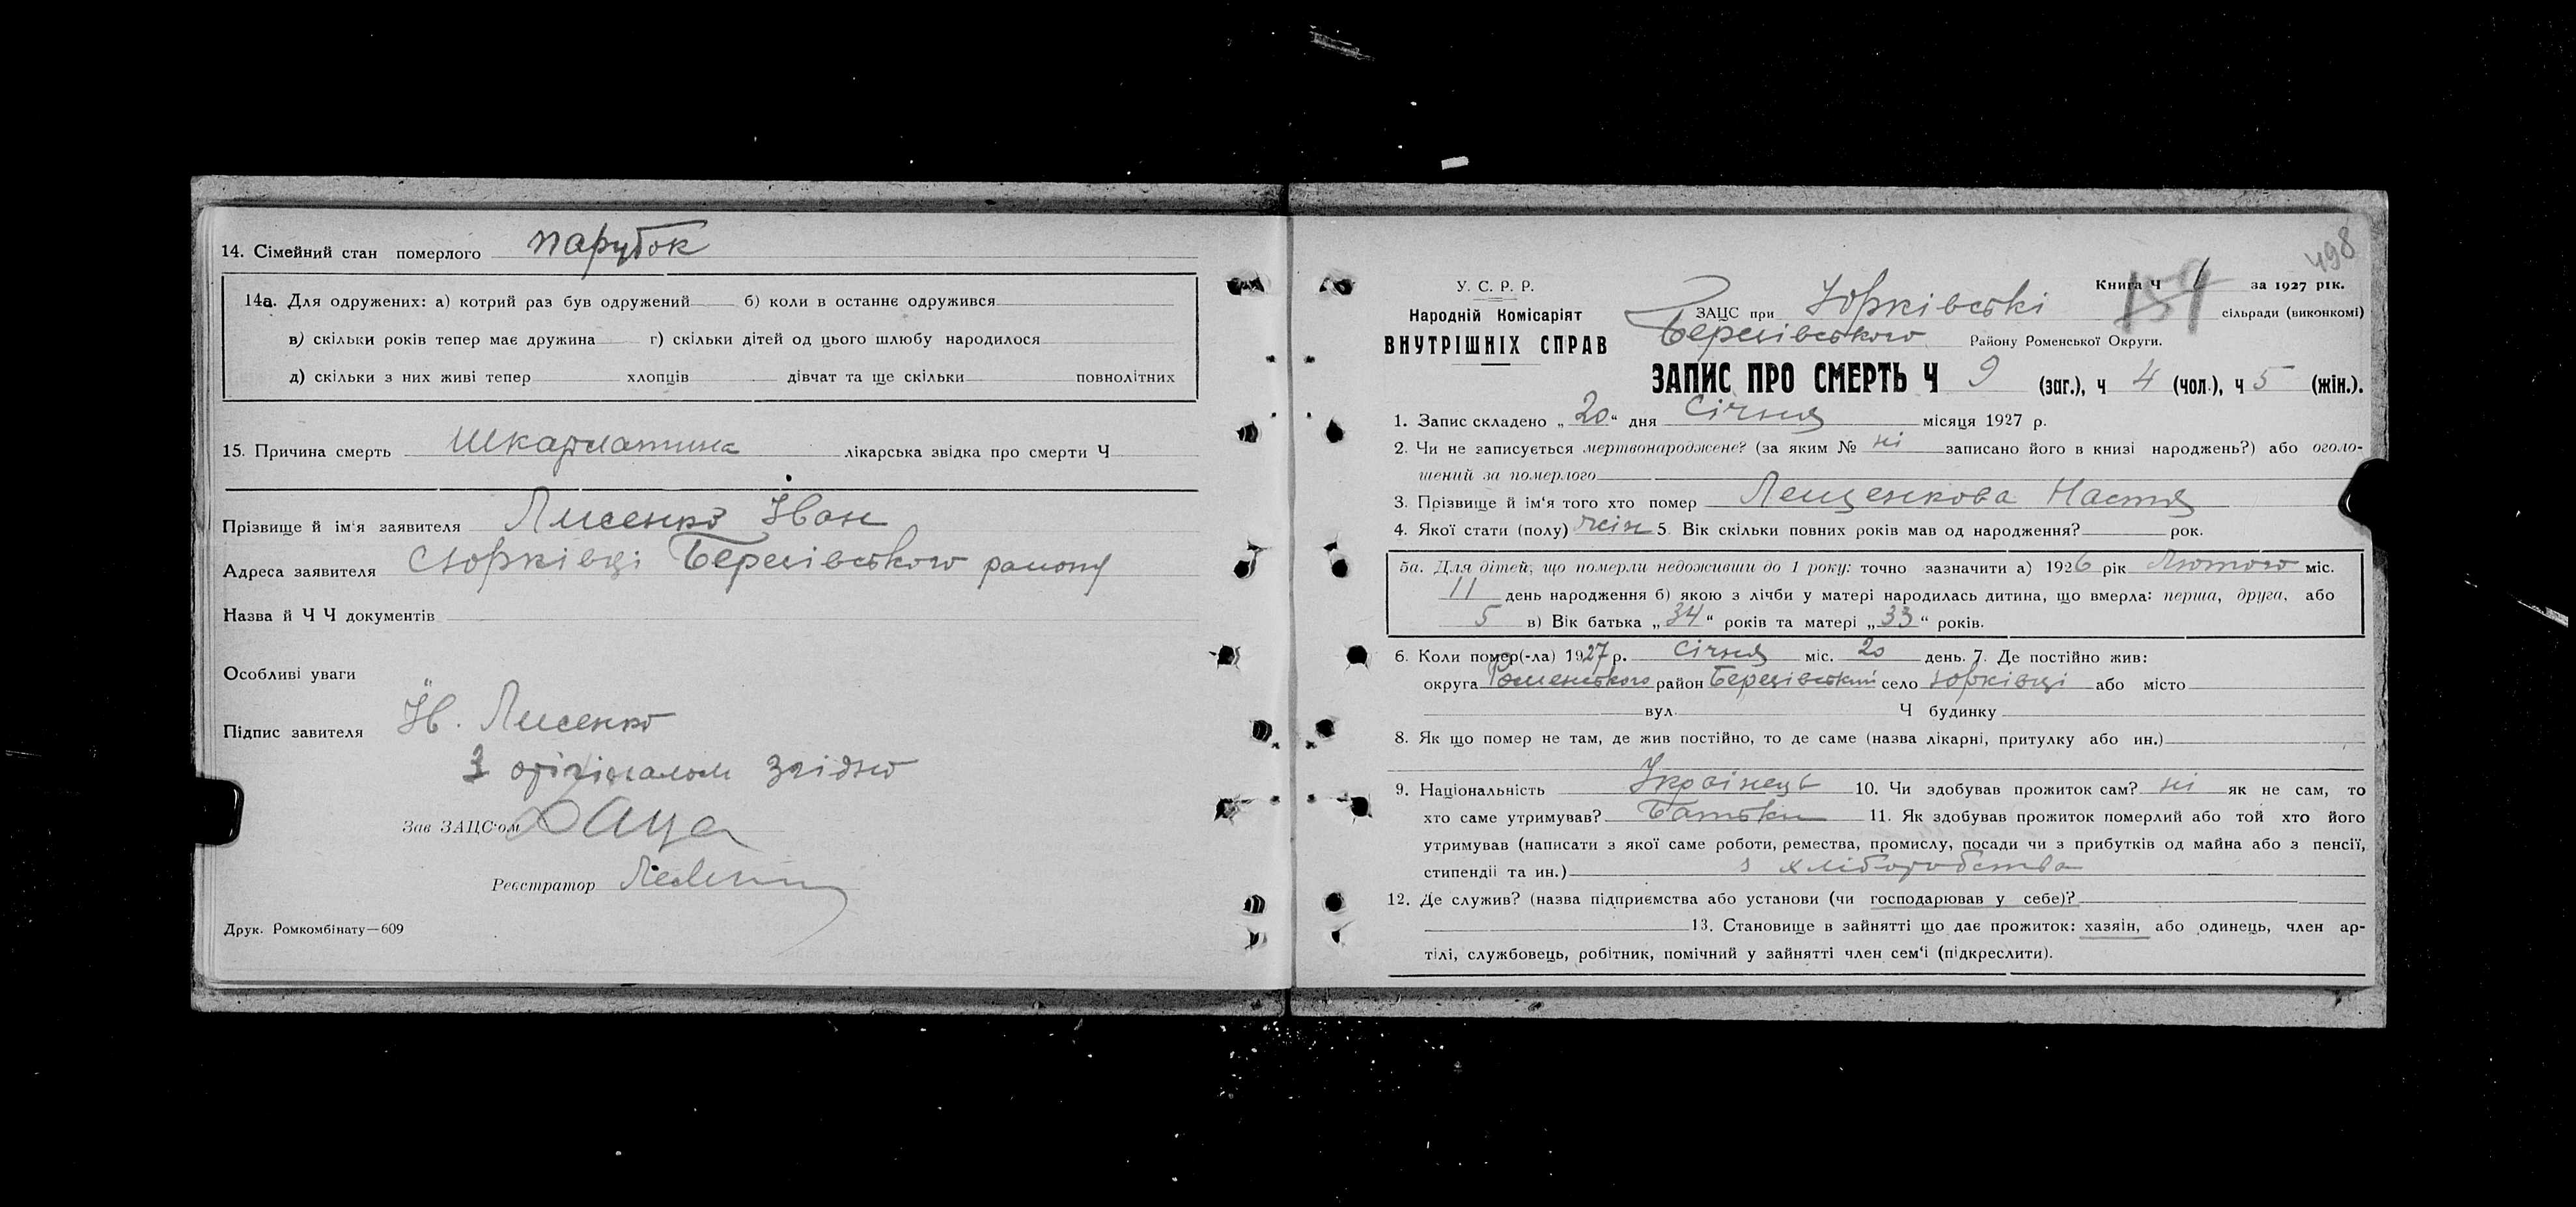 14. Сімейний стан померлого парубок
14а. Для одружених: а) котрий раз був одружений б) коли в останнє одружився
в) скільки років тепер має дружина г) скільки дітей од цього шлюбу народилося
д) скільки з них живі тепер хлопців дівчат та ще скільки повнолітних
15. Причина смерть Шкарлатина лікарська звідка про смерти Ч
Прізвище й ім'я заявителя Лисенко Іван
Адреса заявителя с Юрківці Березівського району
Назва й Ч Ч документів
Особливі уваги
Підпис завителя Ів. Лисенко
З оріґіналом згідно
Зав ЗАЦС'ом
Реєстратор
Друк. Ромкомбінату—609
498
У. С. Р. Р.
Народній Комісаріят
ВНУТРІШНІХ СПРАВ
Книга Ч 1 за 1927 рік.
ЗАЦС при Юрківські сільради (виконкомі)
Березівського Району Роменської Округи.
ЗАПИС ПРО СМЕРТЬ Ч 9 (заг.), ч 4 (чол.), ч 5 (жін.).
1. Запис складено „20“ дня Січня місяця 1927 р.
2. Чи не записується мертвонароджене? (за яким № ні записано його в книзі народжень?) або оголо-
шений за померлого
3. Прізвище й ім'я того хто помер Лещенкова Настя
4. Якої стати (полу) жін 5. Вік скільки повних років мав од народження? рок.
5а. Для дітей, що померли недоживши до 1 року: точно зазначити а) 1926 рік Лютого міс.
11 день народження б) якою з лічби у матері народилась дитина, що вмерла: перша, друга, або
5 в) Вік батька „34“ років та матері „33“ років.
6. Коли помер(-ла) 1927 р. Січня міс. 20 день. 7. Де постійно жив:
округа Роменського район Березівський село Юрківці або місто
вул. Ч будинку
8. Як що помер не там, де жив постійно, то де саме (назва лікарні, притулку або ин.)
9. Національність Українець 10. Чи здобував прожиток сам? ні як не сам, то
хто саме утримував? Батьки 11. Як здобував прожиток померлий або той хто його
утримував (написати з якої саме роботи, ремества, промислу, посади чи з прибутків од майна або з пенсії,
стипендіі та ин.) з хліборобства
12. Де служив? (назва підприємства або установи (чи господарював у себе)?
13. Становище в зайнятті що дає прожиток: хазяїн, або одинець, член ар-
тілі, службовець, робітник, помічний у зайнятті член сем'ї (підкреслити).